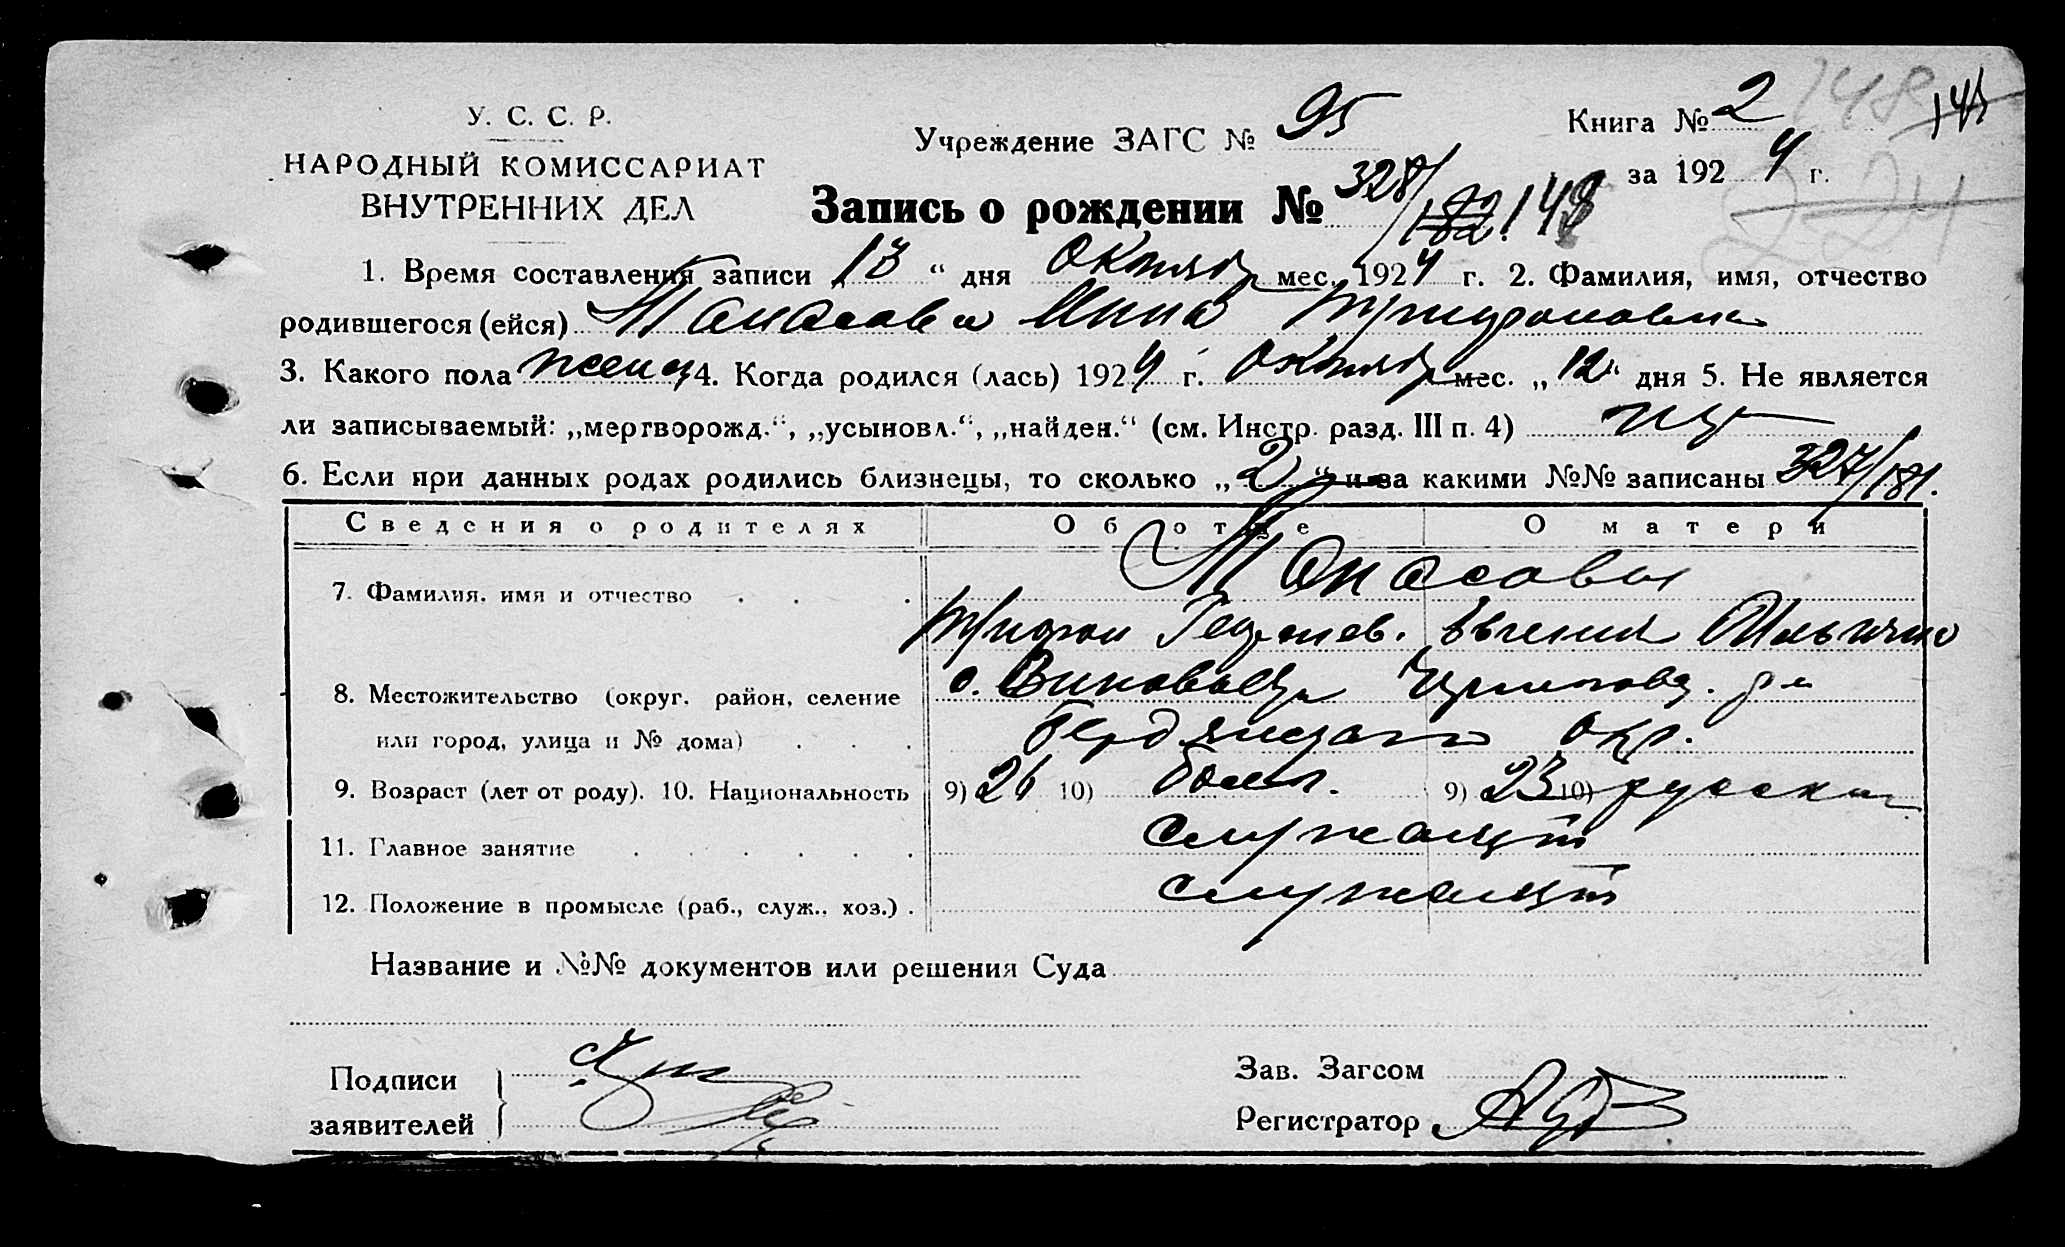 У. С. С. Р.
НАРОДНЫЙ КОМИССАРИАТ
ВНУТРЕННИХ ДЕЛ
Учреждение ЗАГС № 95
Книга № 2 148
за 1924 г. 224
Запись о рождении № 328/182. 148
1. Время составления записи „13“ дня Октября мес. 1924 г. 2. Фамилия, имя, отчество
родившегося (ейся) Танасова Анна Трифоновна
3. Какого пола женск 4. Когда родился (лась) 1924 г. Октября мес. „12“ дня 5. Не является
ли записываемый: „мертворожд.“, „усыновл.“, „найден.“ (см. Инстр. разд. III п. 4) нет
6. Если при данных родах родились близнецы, то сколько „2“ и за какими №№ записаны 327/181.
Сведения о родителях Об отце О матери
7. Фамилия, имя и отчество . . . Танасовы
Трифон Георгиев. Евгения Ильинична
8. Местожительство (округ, район, селение с.
или город, улица и № дома) . . . Бердянского окр.
9. Возраст (лет от роду). 10. Национальность 9) 26 10) болг. 9) 23 10) русская
11. Главное занятие . . . . . . служащий
12. Положение в промысле (раб., служ., хоз.) . служащий
Название и №№ документов или решения Суда
Подписи
заявителей
Зав. Загсом
Регистратор